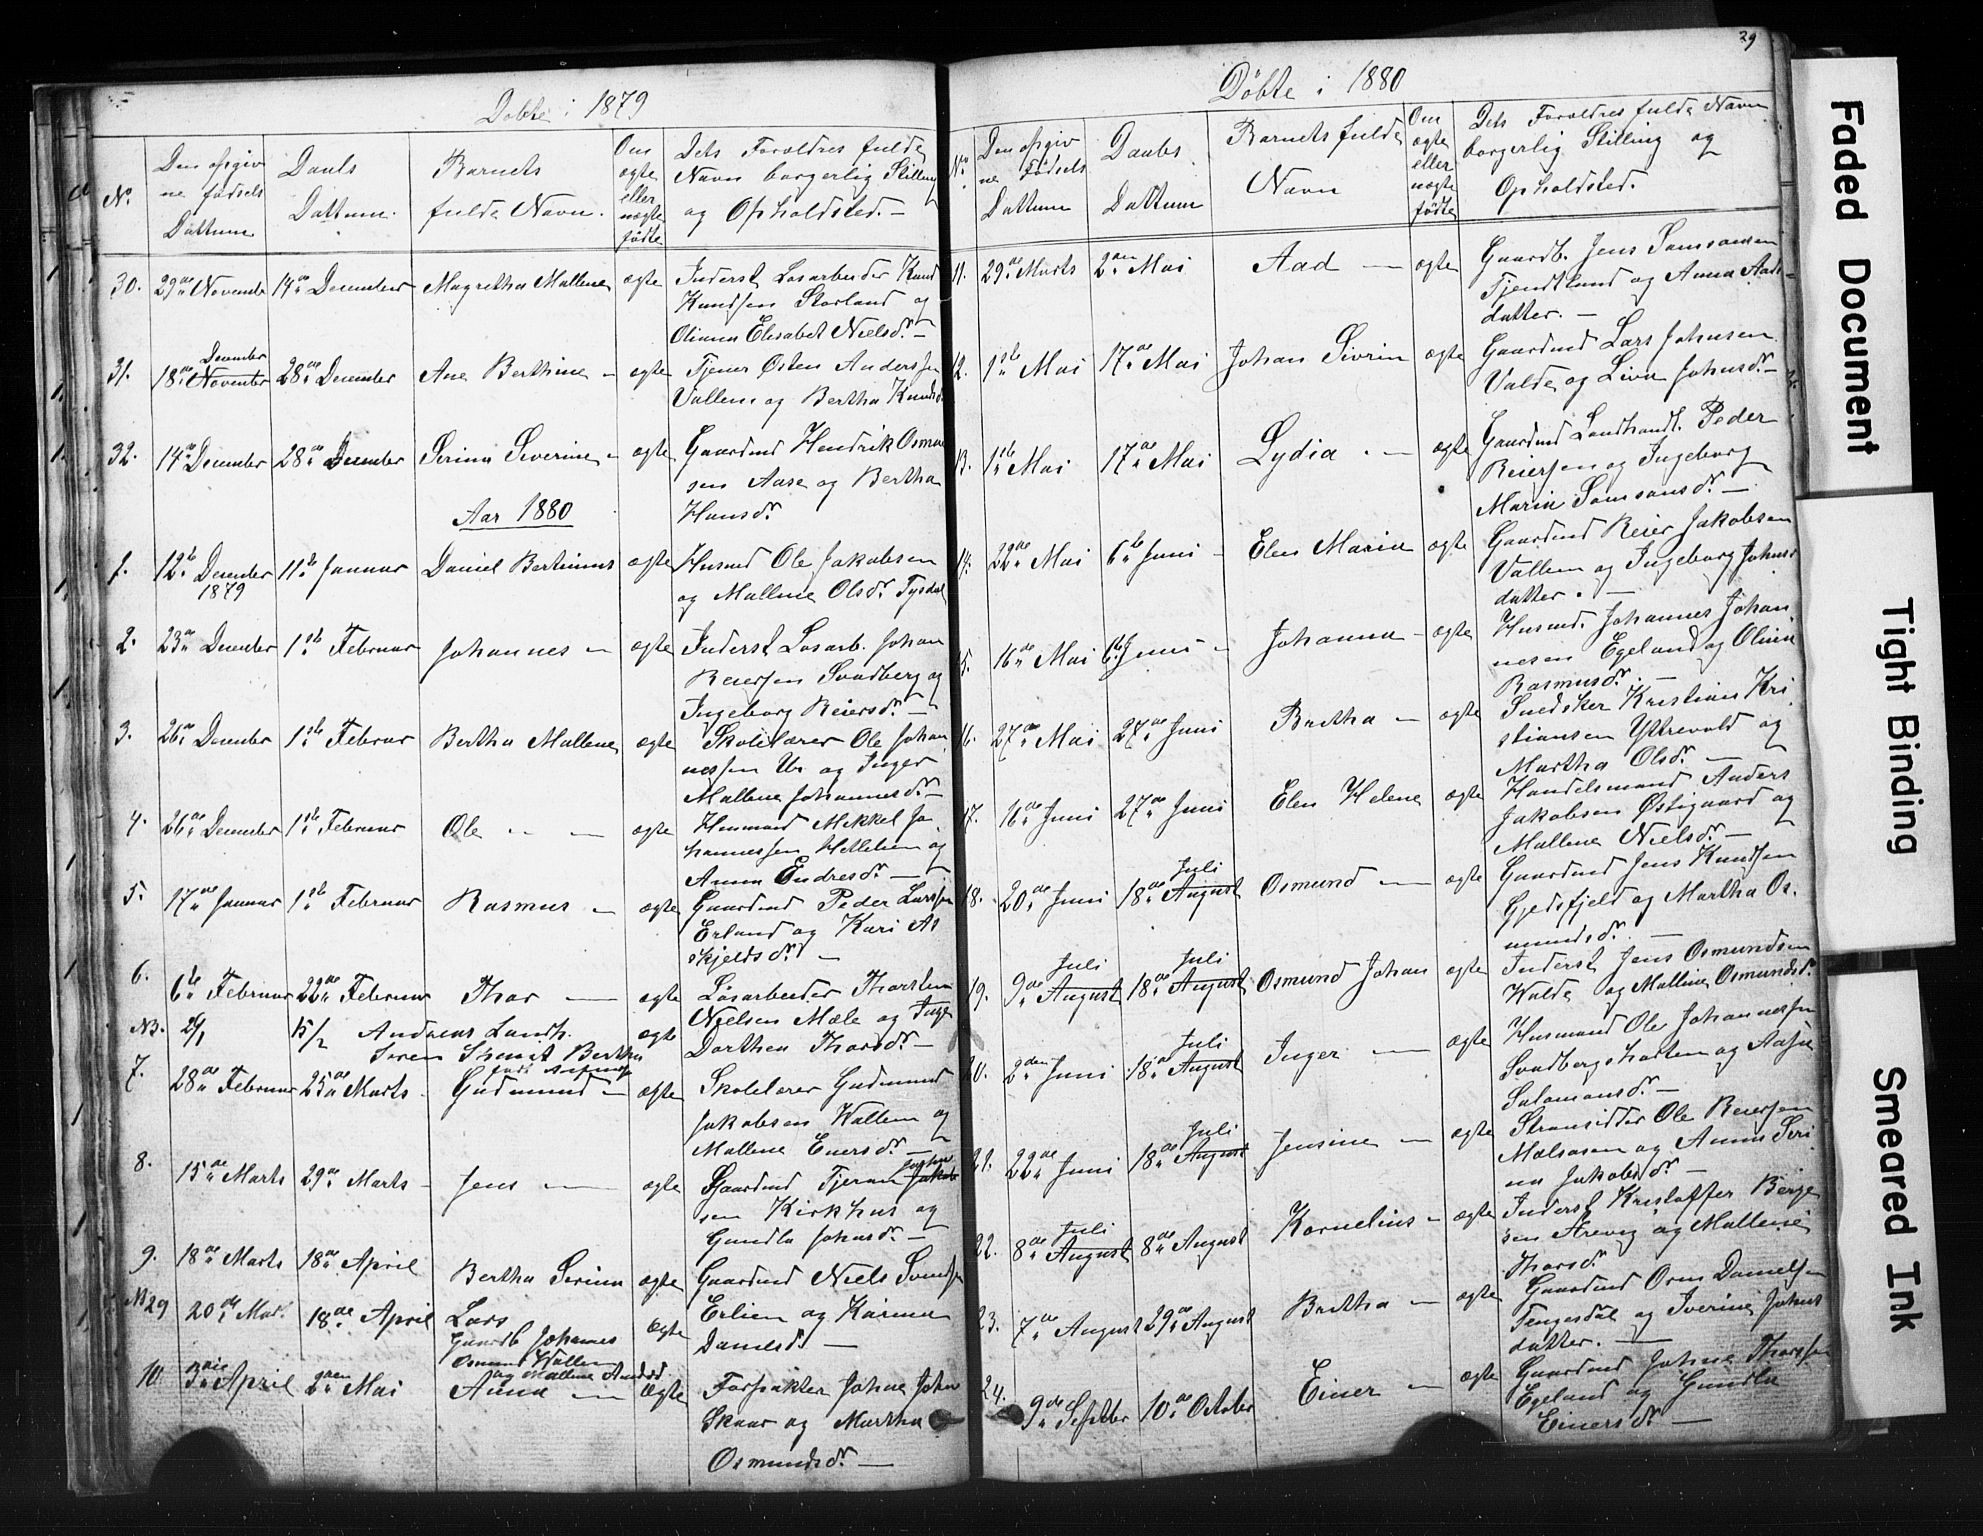 Døbte i 1879
No.
Den opgiv
ne fødsels
Dattum
Daabs
Dattum.
Barnets
fulde Navn.
Om
ægte
eller
uægte
fødte
Dets Forældres fulde
Navn borgerlig Stilling
og Opholdsted. —
30. 29de November 14de December Magretha Mallene ægte Inderst Løsarbeider Knud
Knudsen Storland og
Oliana Elisabet Nielsdr. —
December
31. 18de November 28de December Ane Berthine — ægte Tjener Østen Anderssen
Vallem og Bertha Knudsd.
32. 14de December 28de December Serina Severine — ægte Gaardmd Hendrik Osmun
sen Aase og Bertha
Hansdr.
Aar 1880
1. 12te December 11te Januar Daniel Bertinius ægte Husmd Ole Jakobsen
1879
og Mallene Olsdr. Tysdal
2. 23de December 1ste Februar Johannes — ægte Inderst Løsarb. Johan
Reiersen Svadberg og
Ingeborg Reiersdr. —
3. 26de December 1ste Februar Bertha Mallene ægte Skolelærer Ole Johan
nessen Ur og Inger
Mallene Johannesdr. —
4. 26de December 1ste Februar Ole — — ægte Husmand Mikkel Jo
hannessen Hetlelien og
Anna Endresdr. —
5. 17de Januar 1ste Februar Rasmus — ægte Gaardmd Peder Larssen
Erland og Kari As
skjeldsdr. —
6. 6te Februar 22de Februar Thor — ægte Løsarbeider Thorsten
Nielsen Mæle og Inge
Dorthea Thorsdr. —
NB. 15/2 Andreas Landh. ægte
7. 28de Februar 25de Marts Gudmund — ægte Skolelærer Gudmund
Jakobsen Wallem og
Mallene Enersdr. —
8. 15de Marts 29de Marts — Jens — ægte Gaardmd Tjeran
sen Kirkhus og
Gundla Johnsdr. —
9. 18de Marts 18de April Bertha Serina ægte Gaardmd Niels Svendsen
Erlien og Karina
Danielsd. —
29 20de Mar. 18de April Lars ægte
Gaardb. Johannes
Osmund Wallem
og Mallene Andsd
10 3die April 2den Mai Anna — ægte Forpakter Johne John
Skaar og Martha
Osmundsdr. —
29
Døbte i 1880
No.
Den opgiv
ne fødsels
Dattum
Daabs
Dattum
Barnets fulde
Navn
Om
ægte
eller
uægte
fødte
Dets Forældres fulde Navn
borgerlig Stilling og
Opholdsted.
11. 29de Marts 2den Mai Aad — ægte Gaardb. Jens Samsonsen
Tjendtland og Anna Aads-
datter. —
12. 1ste Mai 17de Mai Johan Sivrin ægte Gaardmd Lars Johnsen
Valde og Liva Johnsdr. —
13. 1ste Mai 17de Mai Lydia — ægte Gaardmd Landhandl. Peder
Reiersen og Ingeborg
Maria Samsonsdr. —
14. 22de Mai 6te Juni — Elen Maria ægte Gaardmd Reier Jakobsen
Vallem og Ingeborg Johns
datter. —
15. 16de Mai 6te Juni — Johanna — ægte Husmd. Johannes Johan
nesen Egeland og Olivia
Rasmusdr. —
16. 27de Mai 27de Juni Bertha — ægte Snedsker Kristian Kri
stiansen Yttrevold og
Martha Olsdr. —
17. 16de Juni 27de Juni Elen Helene ægte Handelsmand Anders
Jakobsen Østigaard og
Mallene Nielsdr. —
Juli
18. 20de Juni 18de August Osmund — ægte Gaardmd Jens Knudsen
Gjedsfjeld og Martha Os-
mundsdr. —
Juli Juli
19. 9de August 18de August Osmund Johan ægte Inderst Jens Osmundsen
Walde og Mallene Osmundsdr.
Juli
20. 2den Juni 18de August Inger — ægte Husmand Ole Johannessen
Svadbergsholten og Aasa
Salamonsdr. —
Juli
21. 22de Juni 18de August Jensine — ægte Stransidder Ole Reiersen
Mælsosen og Anna Seri
na Jakobsdr. —
Juli
22. 8de August 8de August Kornelius — ægte Inderst Kristoffer Børge
sen Arevig og Mallene
Thorsdr.
23. 7de August 29de August Bertha — ægte Gaardmd Orm Danielsen
Tengesdal og Iverine Johns
datter. —
24. 9de Septber 10de October Einer — ægte Gaardmd Johne Thorssen
Egeland og Gundla
Einersdr. —
Faded Document
Tight Binding
Smeared Ink